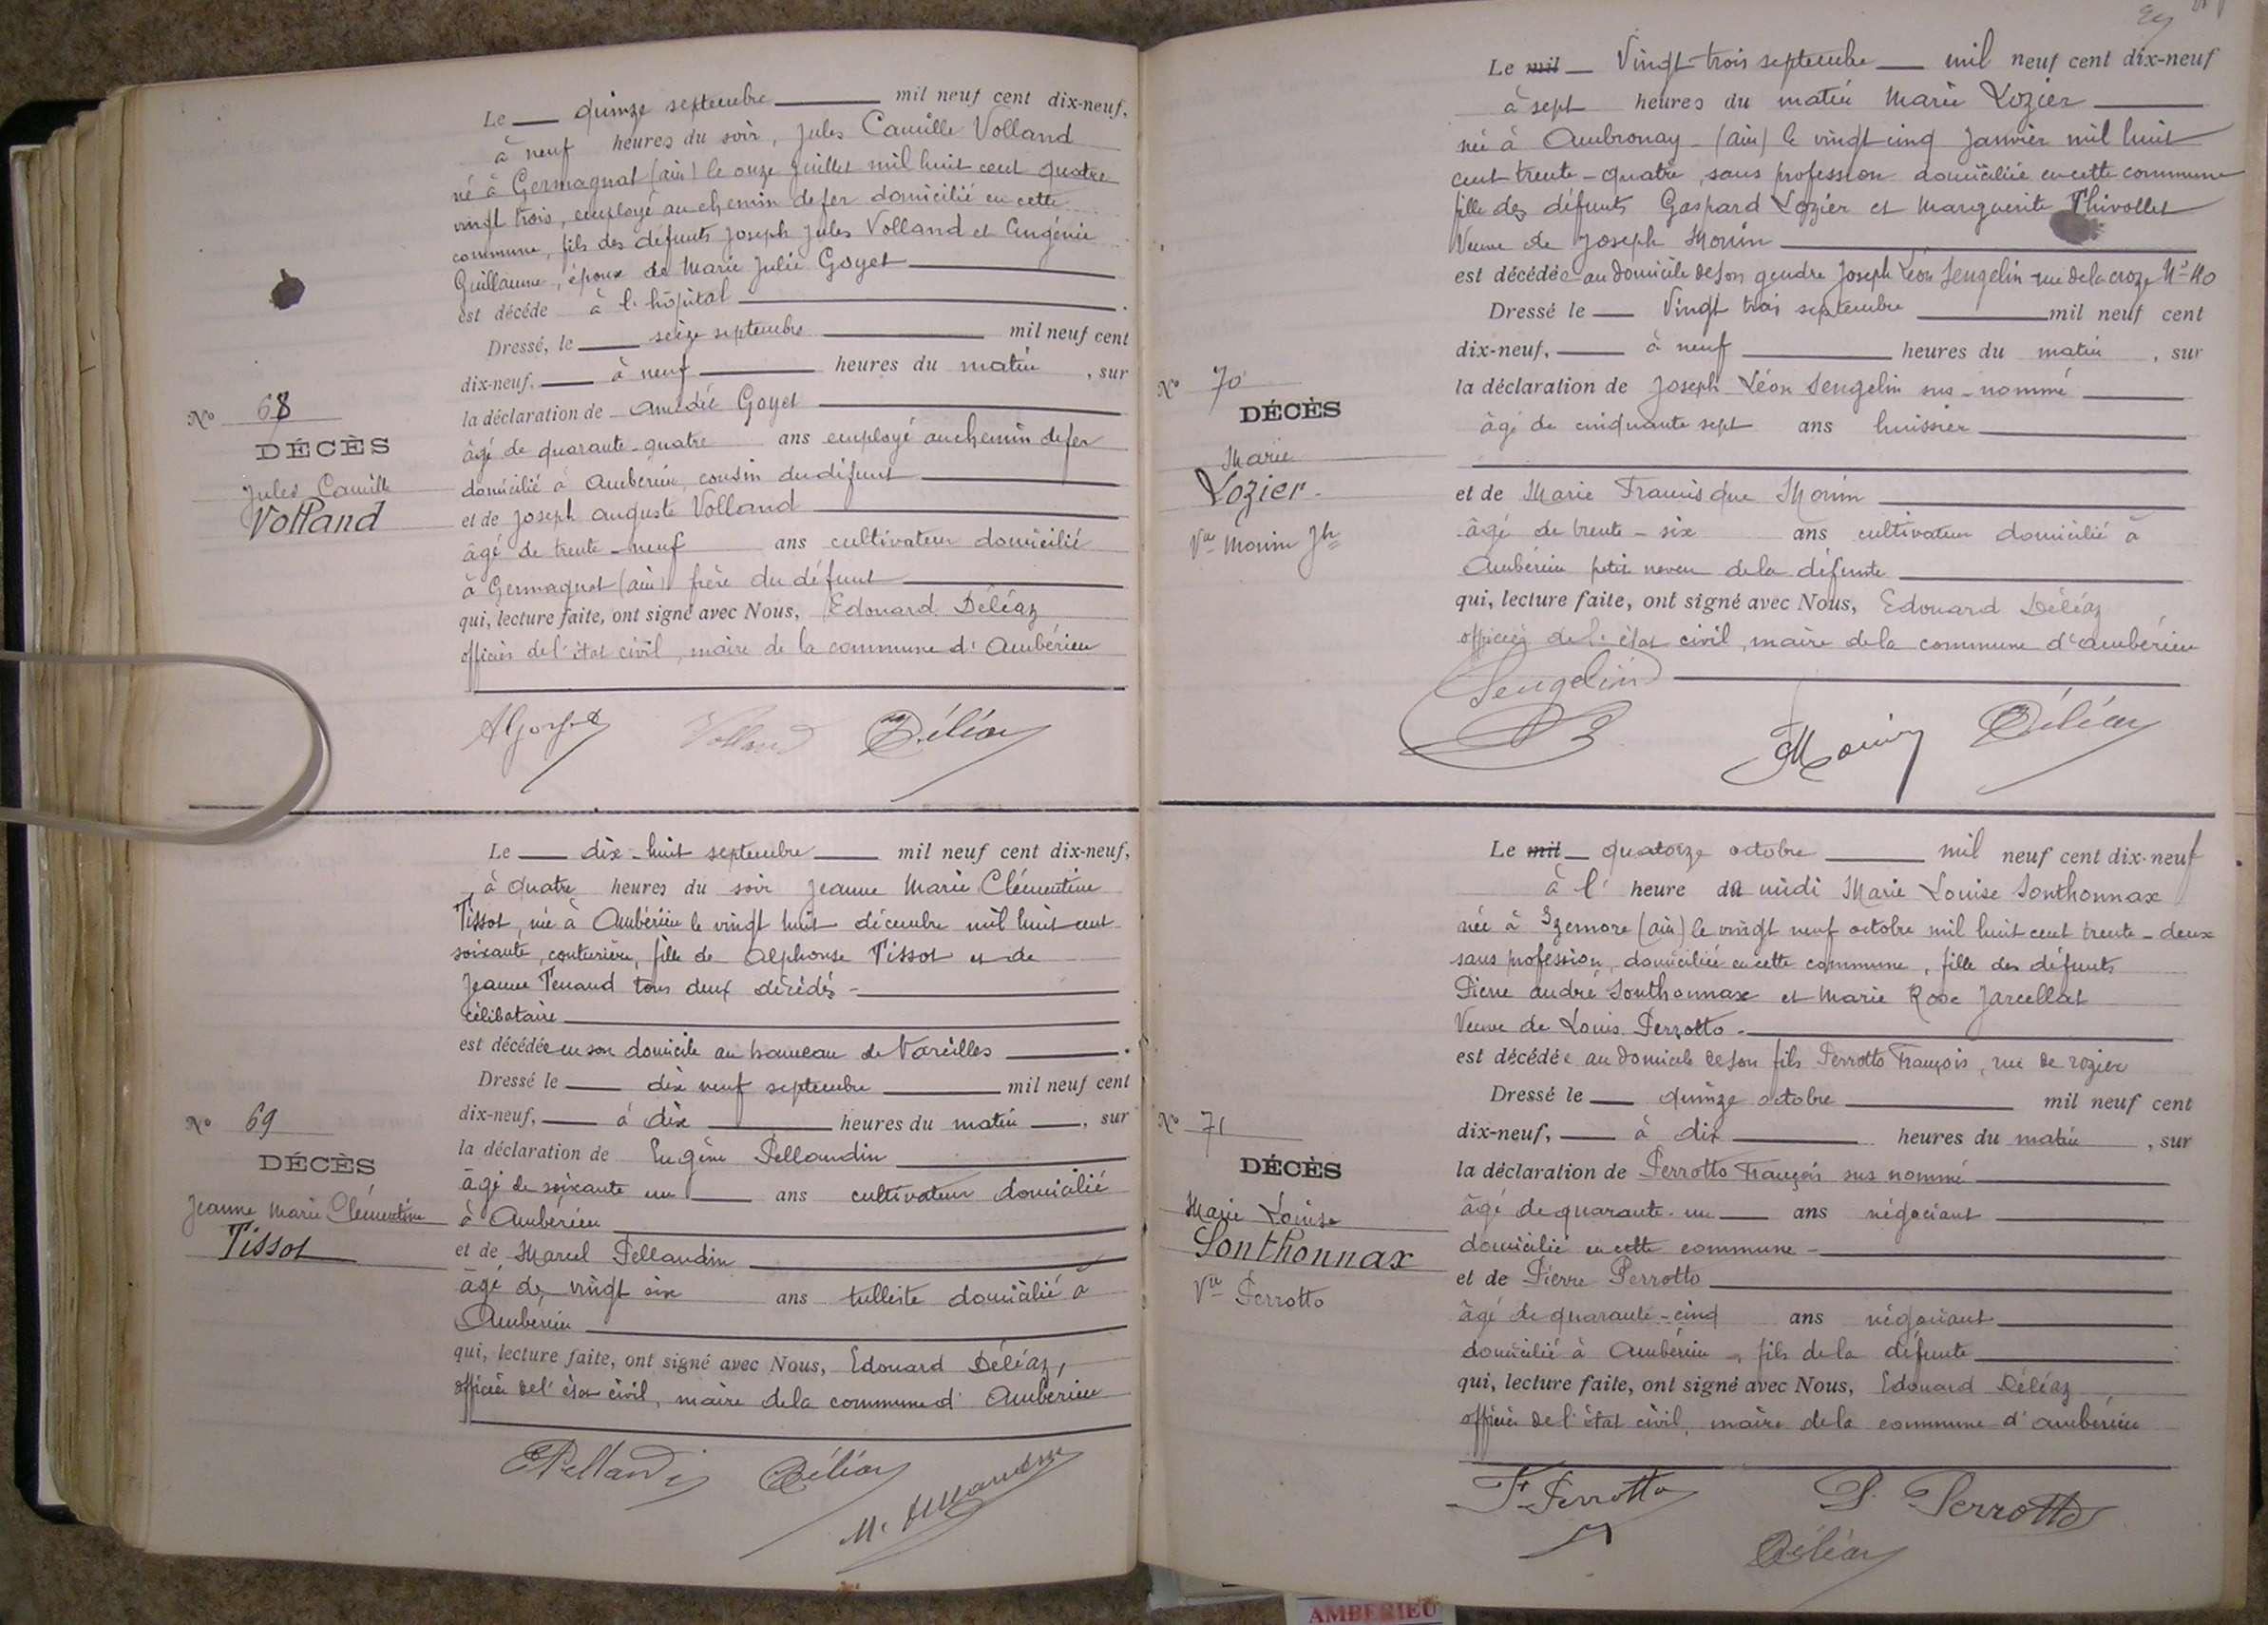 Le — quinze septembre — mil neuf cent dix-neuf,
à neuf heures du soir, Jules Camille Volland
né à Germagnat (ain) le onze juillet mil huit cent quatre
vingt trois, employé au chemin de fer domicilié en cette
commune, fils des défunts Joseph Jules Volland et Eugénie
Guillaume, époux de Marie Julie Goyet
est décédé à l'hôpital
Dressé, le — seize septembre — mil neuf cent
dix-neuf, — à neuf — heures du matin, sur
No 68
la déclaration de Amédée Goyet
DÉCÈS
âgé de quarante-quatre ans employé au chemin de fer
Jules Camille
domicilié à Ambérieu, cousin du défunt
Volland
et de Joseph auguste Volland
âgé de trente-neuf ans cultivateur domicilié
à Germagnat (ain) frère du défunt
qui, lecture faite, ont signé avec Nous, Edouard Déléaz
officier de l'état civil, maire de la commune d'Ambérieu
Volland Déléaz
Le — dix-huit septembre — mil neuf cent dix-neuf,
à quatre heures du soir Jeanne Marie Clémentine
Tissot, née à Ambérieu le vingt huit décembre mil huit cent
soixante, couturière, fille de Alphonse Tissot et de
Jeanne Tenand tous deux décédés -
célibataire
est décédée en son domicile au hameau de Vareilles
Dressé le — dix neuf septembre — mil neuf cent
No 69
dix-neuf, — à dix — heures du matin —, sur
DÉCÈS
la déclaration de Eugène Pellaudin
âgé de soixante un — ans cultivateur domicilié
Jeanne Marie Clémentine
à Ambérieu
Tissot
et de Marcel Pellaudin
âgé de vingt six ans tulliste domicilié à
Ambérieu
qui, lecture faite, ont signé avec Nous, Edouard Déléaz,
officier de l'état civil, maire de la commune d'Ambérieu
EPellaudin Déléaz
M. Pellaudin
Le mil — Vingt-trois septembre — mil neuf cent dix-neuf
à sept heures du matin Marie Lozier
née à Ambronay - (ain) le vingt cinq Janvier mil huit
cent trente-quatre, sans profession domiciliée en cette commune
fille des défunts Gaspard Lozier et Marguerite Thivollet
Veuve de Joseph Monin
est décédée au domicile de son gendre Joseph Léon Sengelin rue de la croze N° 40
Dressé le — Vingt trois septembre — mil neuf cent
dix-neuf, — à neuf — heures du matin, sur
No 70
la déclaration de Joseph Léon Sengelin sus-nommé
DÉCÈS
âgé de cinquante sept ans huissier
Marie
Lozier
et de Marie Francisque Monin
Vve Monin Jh
âgé de trente-six ans cultivateur domicilié à
Ambérieu petit neveu de la défunte
qui, lecture faite, ont signé avec Nous, Edouard Déléaz
officier de l'état civil, maire de la commune d'Ambérieu
Sengelin
Monin Déléaz
Le mil — quatorze octobre — mil neuf cent dix-neuf
à l'heure de midi Marie Louise Sonthonnax
née à Izernore (ain) le vingt neuf octobre mil huit cent trente-deux
sans profession, domiciliée en cette commune, fille des défunts
Pierre andré Sonthonnax et Marie Rose Jarcellat
Veuve de Louis Perrotto -
est décédée au domicile de son fils Perrotto François, rue de rozier
Dressé le — quinze octobre — mil neuf cent
No 71
dix-neuf, — à dix — heures du matin, sur
DÉCÈS
la déclaration de Perrotto François sus nommé
Marie Louise
âgé de quarante-un — ans négociant
Sonthonnax
domicilié en cette commune -
Vve Perrotto
et de Pierre Perrotto
âgé de quarante-cinq ans négociant
domicilié à Ambérieu, fils de la défunte
qui, lecture faite, ont signé avec Nous, Edouard Déléaz
officier de l'état civil, maire de la commune d'ambérieu
F. Perrotto P. Perrotto
Déléaz
AMBERIEU